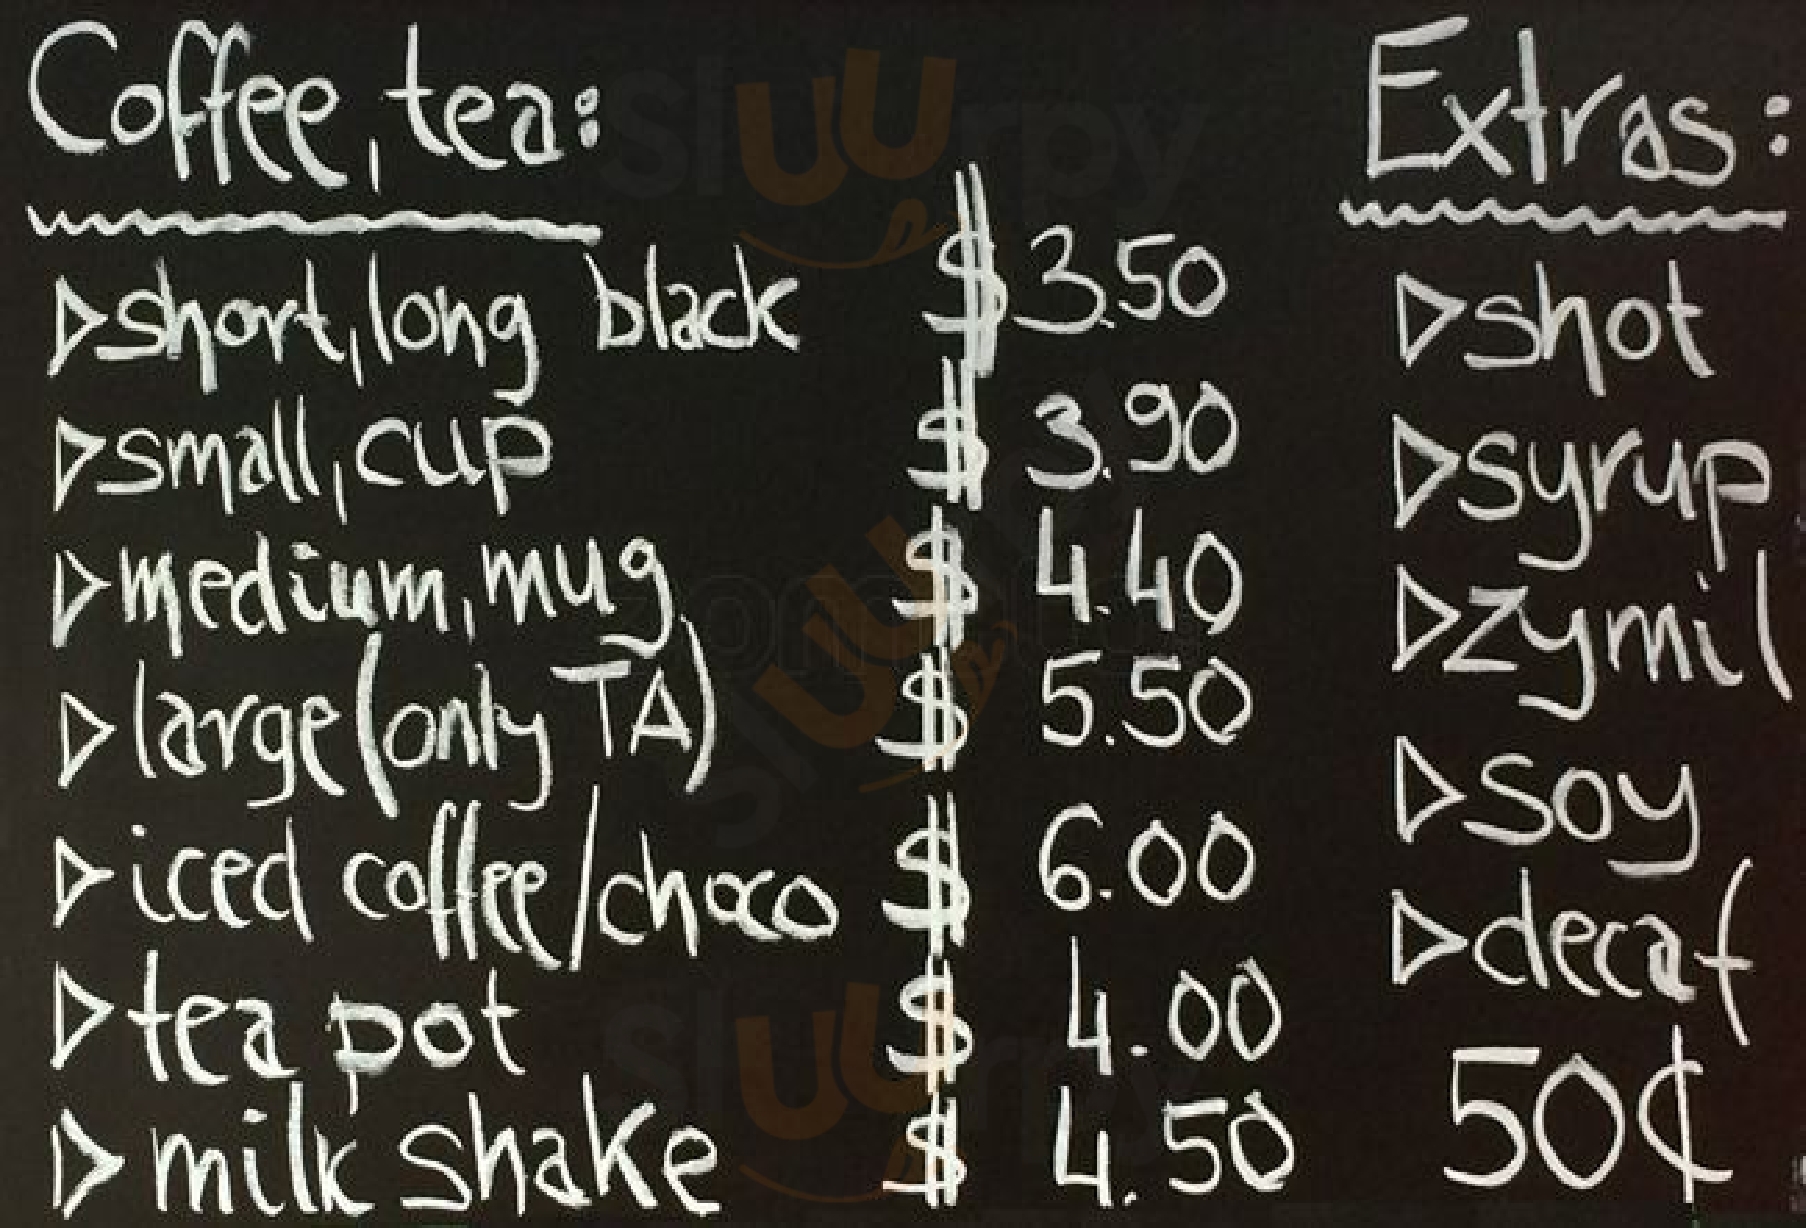 Coffee, tea:
▷short, long black $3.50
▷small, cup $3.90
▷medium, mug $4.40
▷large (only TA) $5.50
▷iced coffee/choco $6.00
▷tea pot $4.00
▷milk shake $4.50
Extras:
▷shot
▷syrup
▷zymil
▷soy
▷decaf
50¢
sluurpy
zomato
sluurpy
sluurpy